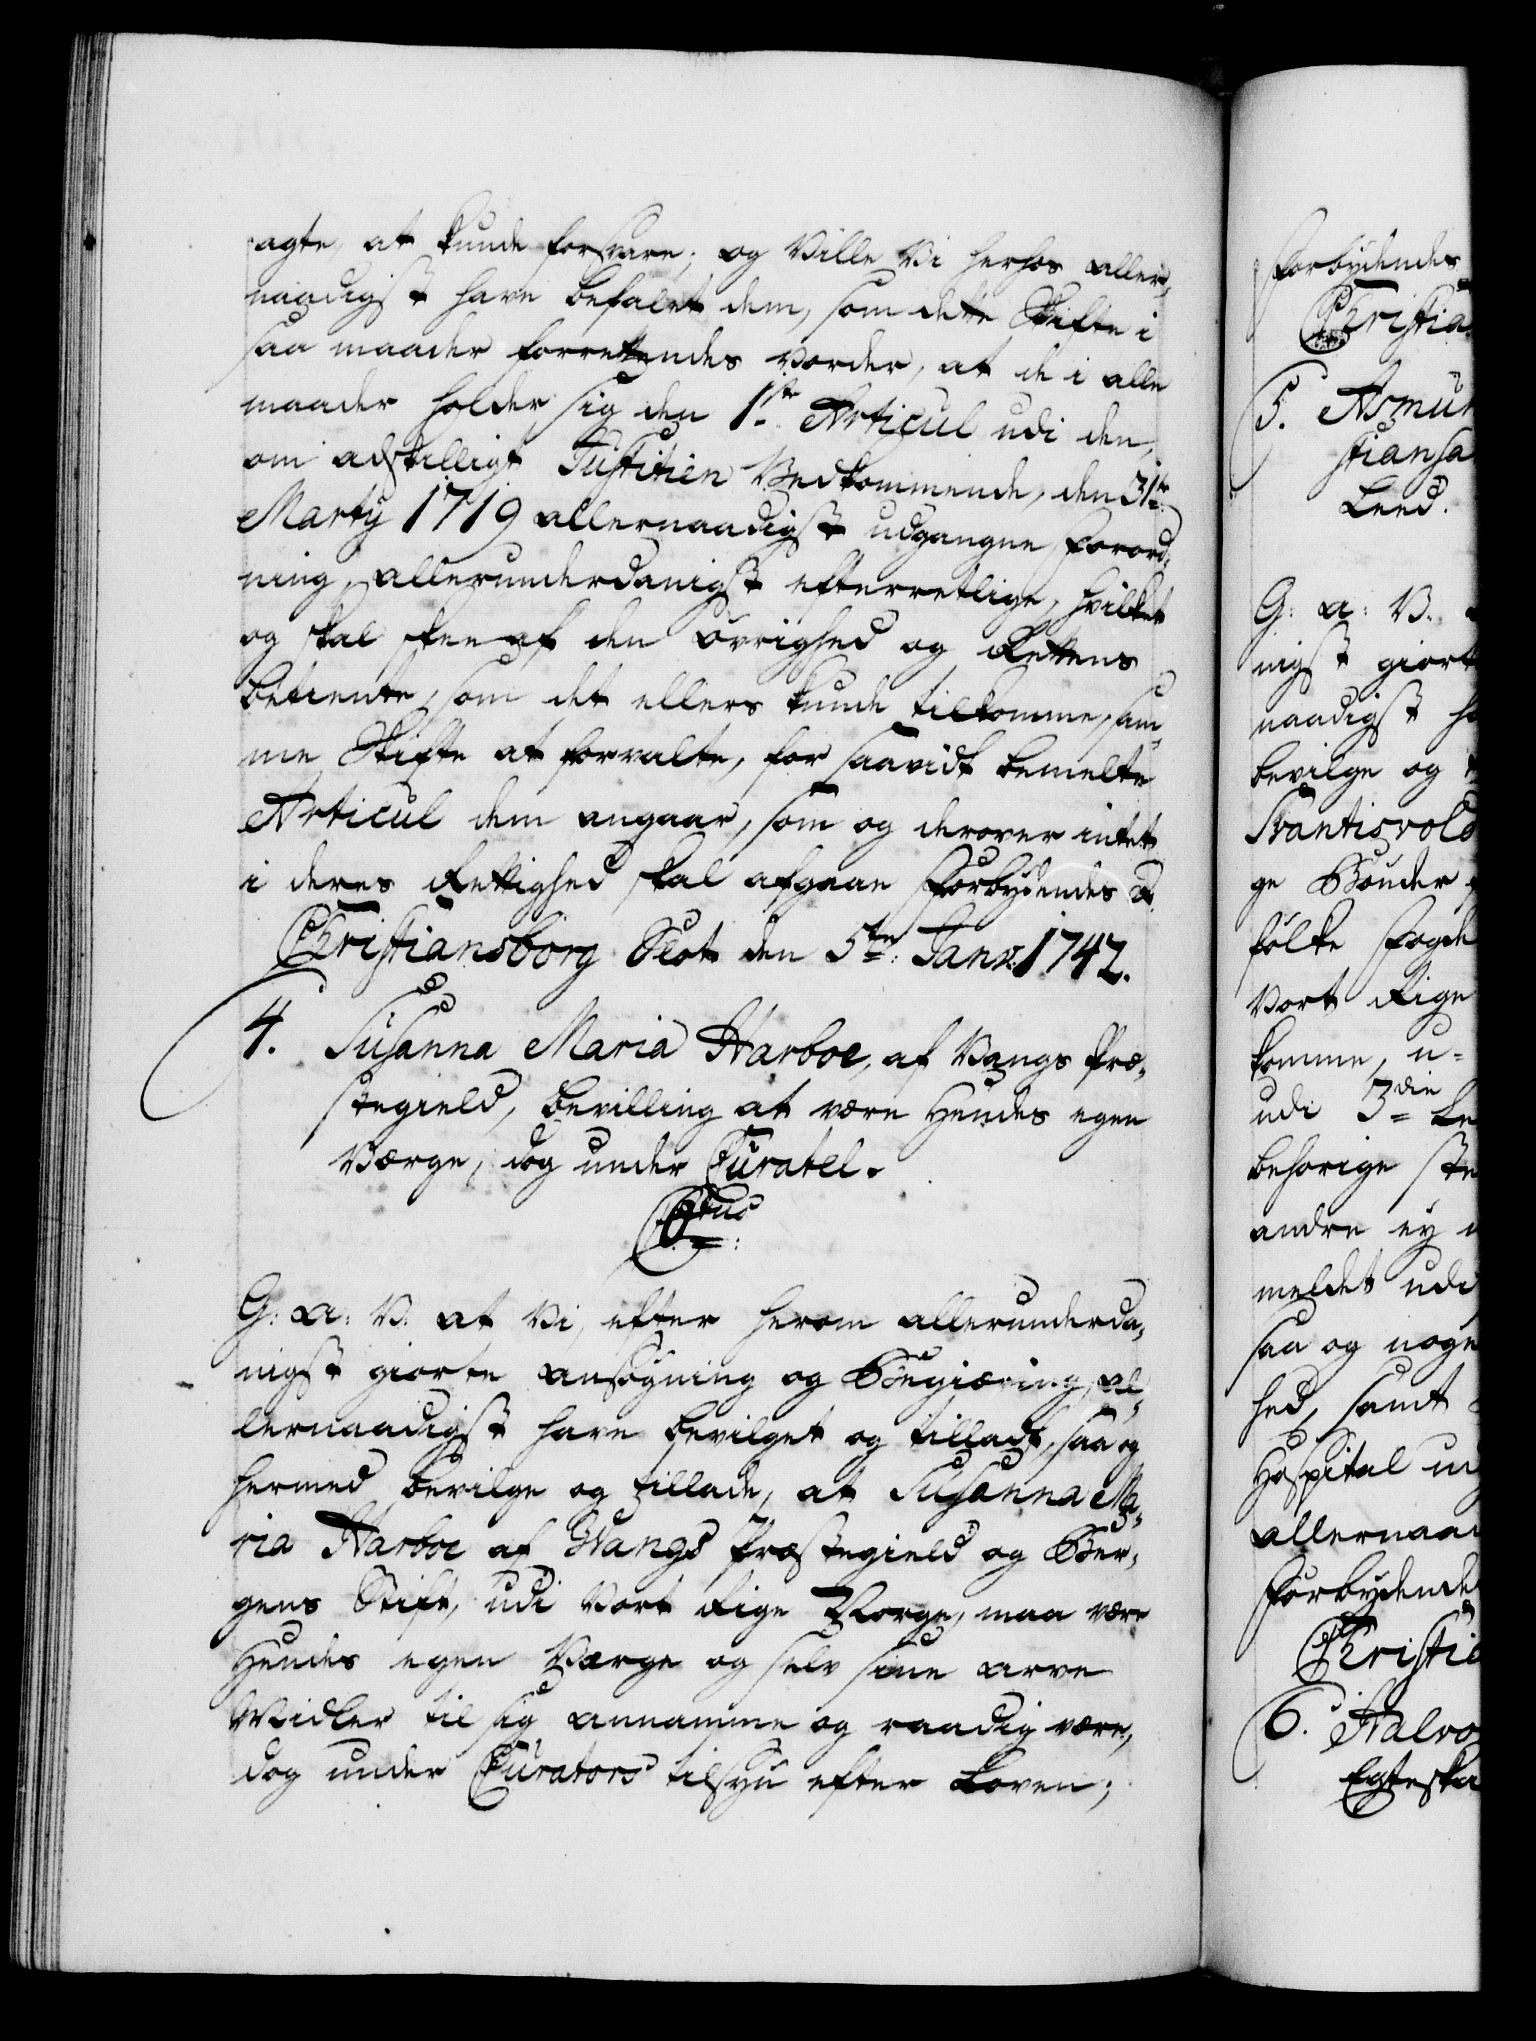 agte, at kunde forsvare; og Ville Vi herhos aller-
naadigst have befalet dem, som dette Skifte i
saa maader forrettendes vorder, at de i alle
maader holder sig den 1ste Articul udi den,
om adskilligt Justitien Vedkommende, den 31te
Martÿ 1719 allernaadigst udgangne Forord-
ning, allerunderdanigst efterrettlige, hvilket
og skal skee af den Øvrighed og Rettens
betiente, som det ellers kunde tilkomme, sam-
me Skifte at forvalte, for saavidt bemelte
Articul dem angaar, som og derover intet
i deres Rettighed skal afgaae Forbydendes
Christiansborg Slot den 5te: Janv: 1742.
4. Susanna Maria Harboe, af Vangs Præ-
stegield, bevilling at være Hendes egen
Værge, dog under Curatel.
C6tus:
G: a: V: at Vi, efter herom allerunderda-
nigst giorte ansøgning og Begiæring, al-
lernaadigst have bevilget og tilladt, saa og
hermed bevilge og tillade, at Susanna Ma-
ria Harboe af Wangs Præstegield og Ber-
gens Stift, udi Vort Rige Norge, maa være
Hendes egen Værge og selv sine arve
Midler til sig annamme og raadig være,
dog under Curators tilsyn efter Loven;
Forbydendes
Christia
5. Asmun
stiansa
Leed.
G: a: V.
nigst giort
naadigst ha
bevilge og
Svantisvold
ge Bønder
folke Fogde
Vort Rige
komme, u-
udi 3die Le
behørige ste
andre ey
meldet udi
saa og noge
hed, samt
Hospital
allernaa
Forbydende
Christia
6. Halvo
Egteska